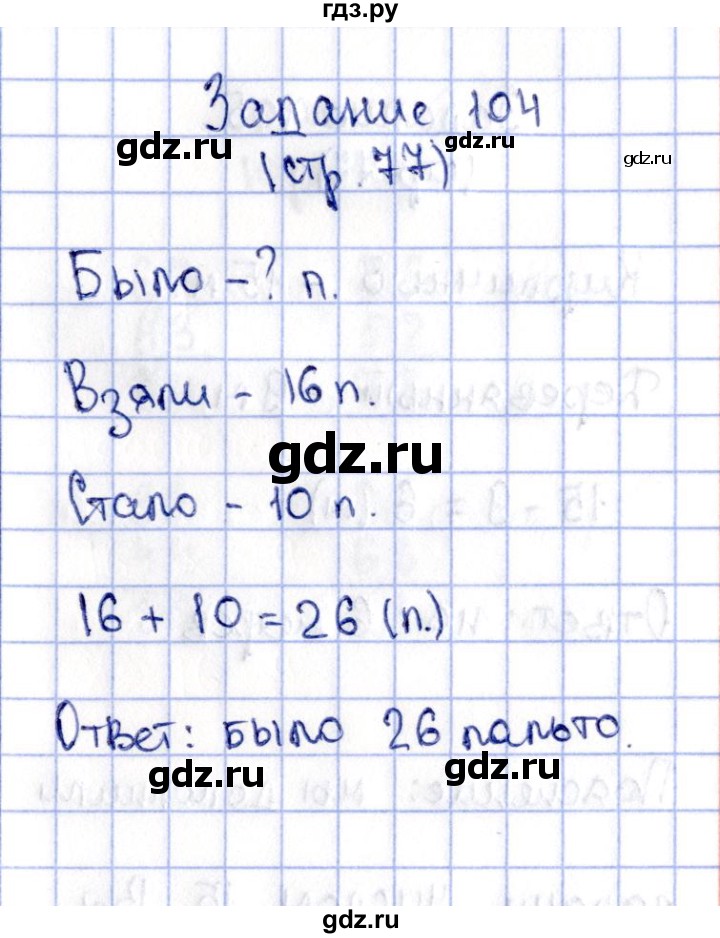 гдз.ру
Задание 104
gdz.ru
gdz.ru
gdz.ru
(стр. 77)
Было - ? п.
Взяли - 16 п.
gdz.ru
Стало - 10 п.
16 + 10 = 26 (п.)
Ответ: было 26 пальто.
gdz.ru
gdz.ru
gdz.ru